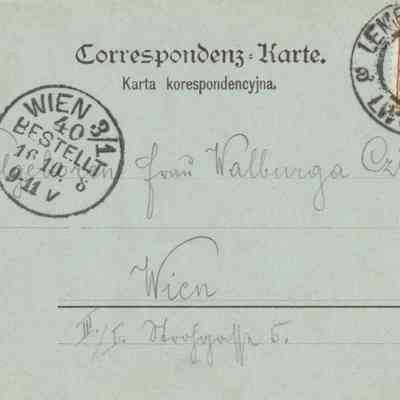 Correspondenz-Karte.
Karta korespondencyjna.
LEM
WIEN 3/1
40
BESTELLT
16.10. 8
9-11 V
Frau Walburga
Wien
III/1. Strohgasse 5.